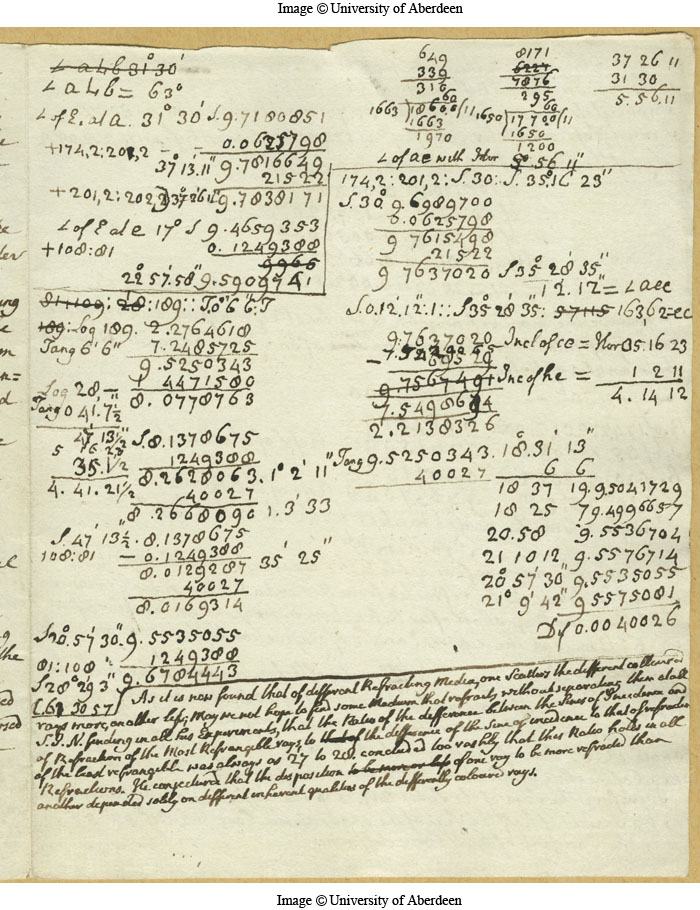 Image © University of Aberdeen
∠ a L b 31° 30'
∠ a L b = 63°
∠ of E. al a. 31° 30' S. 9.7180851
0.0625798
+174,2:201,2 — 37° 13.11" 9.7816649
21522
+201,2:202,2 37° 26' 11" 9.7838171
∠ of E al e 17° S 9.4659353
+108:81 0.1249388
9965
22° 57'.58" 9.5909741
81:109: 28 :189::T.0° 6' 6".T
189: Log 189. 2.2764618
Tang 6' 6" 7.2485725
9.5250343
Log 28, — 1 4471580
Tang 0 41.7½ 8.0778763
47' 13½" S. 8.1378675
5 16 23
35.½ 1249388
8.2628063. 1° 2' 11"
4. 41. 21½ 40027
8.2668090 1. 3' 33
S. 47' 13½". 8.1378675
108:81 — 0.1249388
8.0129287 35' 25"
40027
8.0169314
S20°.57' 30". 9.5535055
81:108 1249388
S28° 29' 3" 9.6784443
649 8171 37 26 11
339 6227 31 30
316 7876 5.56.11
295
60 60
1663) 18608 /11 1650) 17720 /11
1663 1650
1970 1200
∠ of ae with Hor 5° 56 11"
174,2:201,2:S.30:S.35°.16' 23"
S.30 9.6989700
0.0625798
9 7615498
.21522
9 7637020 S35° 28' 35"
12.12" = ∠ aec
S.0.12'.12".1::S35° 28' 35": 57115 16362=ec
9.7637020 Incl of ce = Hor 35.16 23
9.7567491 Inc of he = 1 2 11
4. 14 12
7.5498694
2.2138326
Tang 9.5250343. 18°.31' 13"
40027 6 6
18 37 19.9.5041729
18 25 7 9.4996657
20.58 9.5536704
21 10 12 9.5576714
20° 57' 30" 9.5535055
21° 9' 42" 9.5575081
Df 0.0040026
As it is now found that of different Refracting Media, one Scatters the different coloured
rays more, another less; May we not hope to find some Medium that refracts, without separating them at all
S. I. N. finding in all his Experiments, that the Ratio of the difference between the Sines of Incidence and
of Refraction of the Most Refrangible rays, to that of the difference of the Sine of incidence to that of refraction
of the least refrangible was always as 27 to 28, concluded too rashly that this Ratio holds in all
Refractions. He conjectured that the disposition to be more or less of one ray to be more refracted than
another depended solely on different inherent qualities of the differently coloured rays.
Image © University of Aberdeen